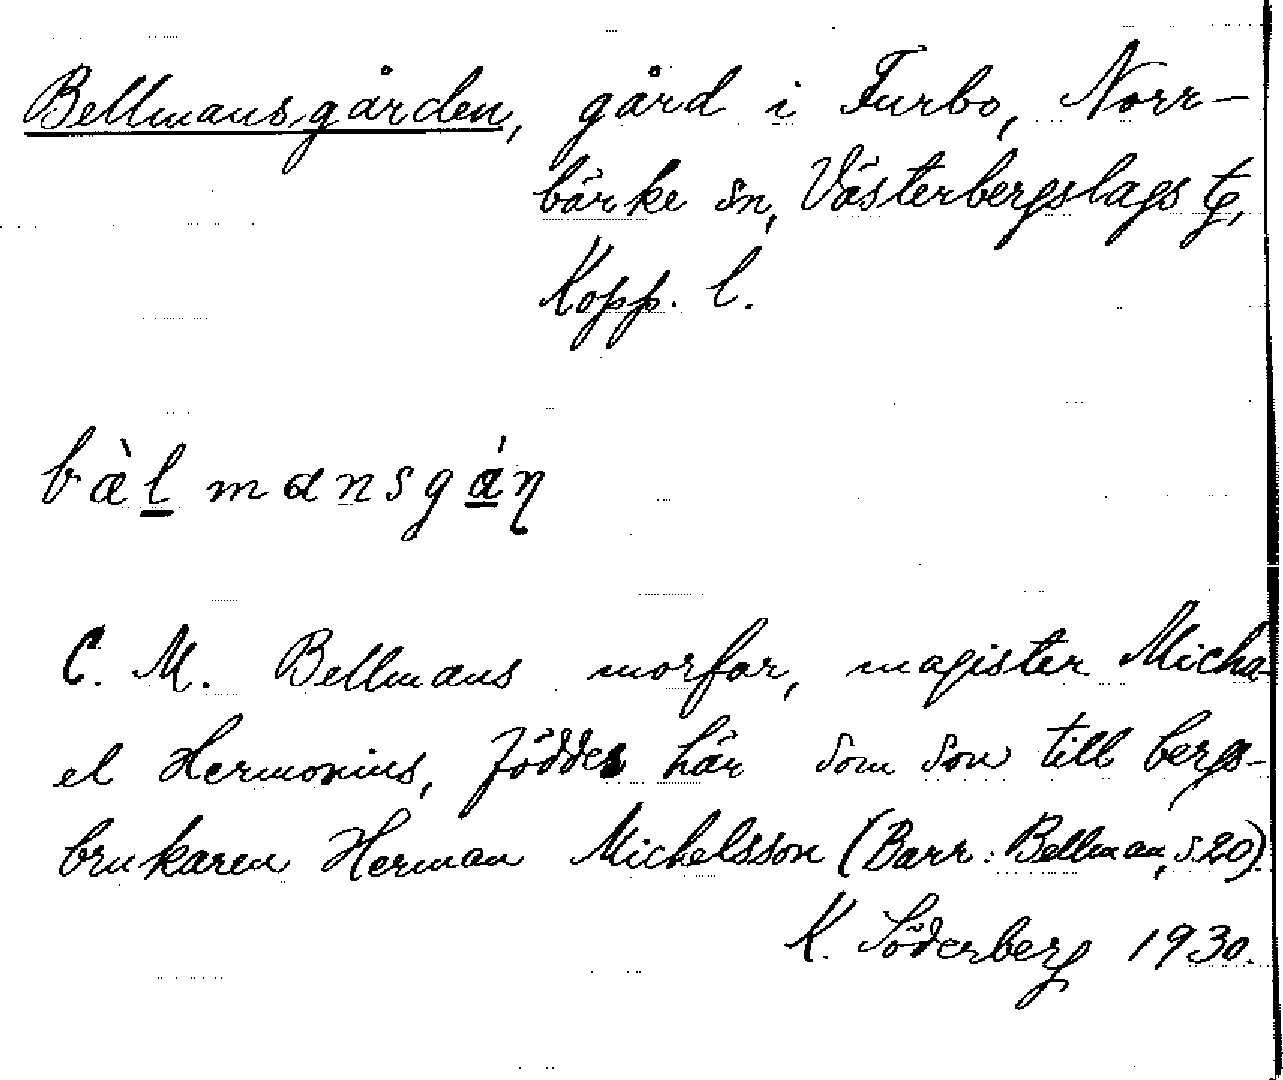 Bellmansgården, gård i Furbo, Norr-
bärke sn, Västerbergslags tg,
Kopp. l.
bæ̀l̲mansgá̲ŋ
C. M. Bellmans morfar, magister Micha-
el Hermonius, föddes här som son till bergs-
brukaren Herman Michelsson (Barr: Bellman, s.20).
K. Söderberg 1930.